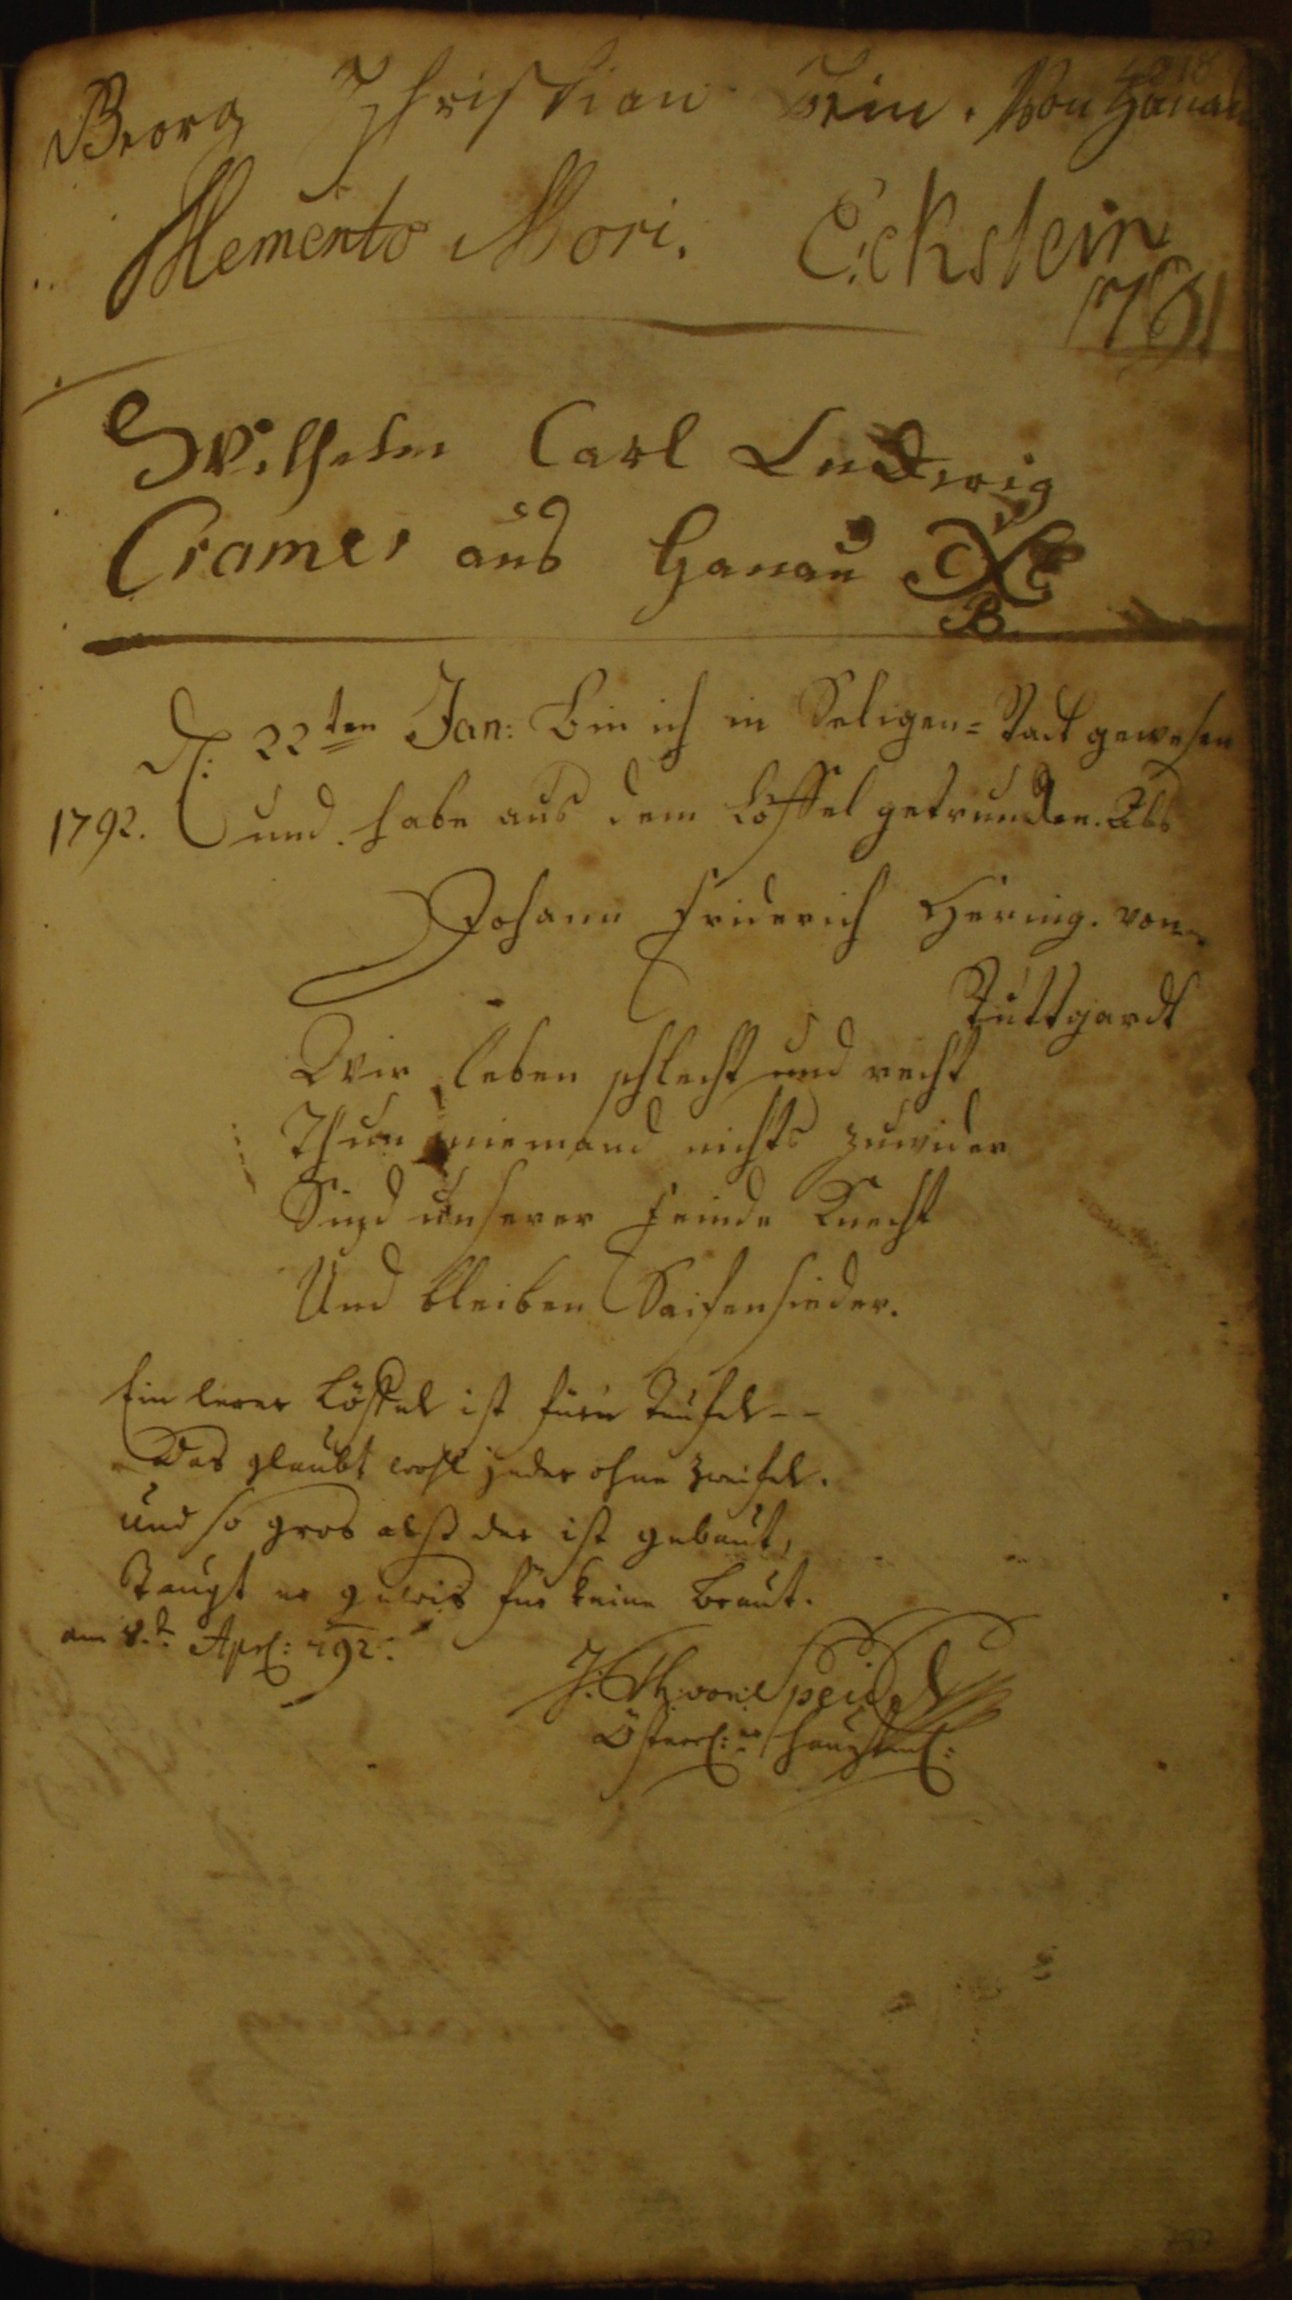 Georg Christian Fein. Von Hanau
Memento Mori. Eckstein
1791
Wilhelm Carl Ludwig
Cramer aus Hanau
B.
D: 22ten Jan: bin ich in Seligen=Stadt gewesen
1792. und habe aus dem Löffel getrunken.
Johann Friderich Hering. von
Stuttgardt
Wir leben schlecht und recht
Thun niemand nichts zuwider
Sind unserer Feinde Knecht
Und bleiben Saifensieder.
Ein lerer Löffel ist fürn Teufel--
Das glaubt wohl jeder ohne Zweifel.
und so gros alß der ist gebaut,
Taugt er gewis für keine Braut.
am 8.t Aprl: 792.
J. Th. von Speidel